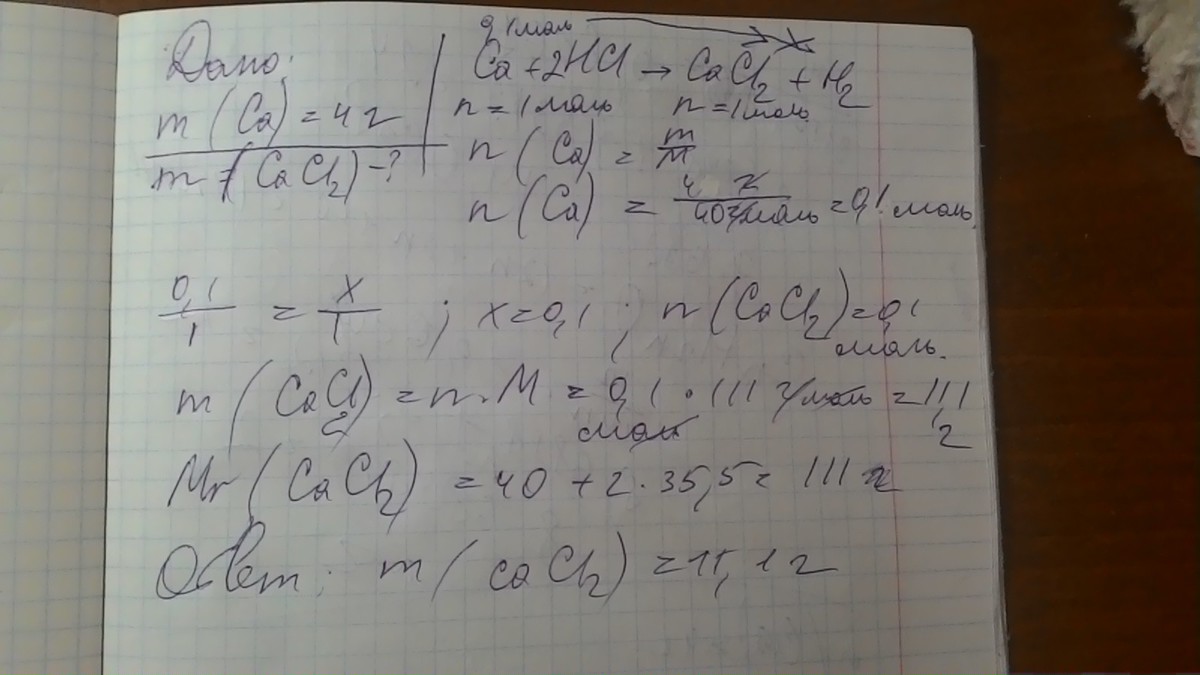 Дано:
m (Ca) = 4 г
m = (CaCl2) - ?
0,1 моль x
Ca + 2HCl → CaCl2 + H2
n = 1 моль n = 1 моль
n (Ca) = m/M
n (Ca) = 4 г / 40 г/моль = 0,1 моль.
0,1/1 = x/1 ; x = 0,1 ; n (CaCl2) = 0,1
моль.
m (CaCl2) = n · M = 0,1 · 111 г/моль = 11,1
моль г
Mr (CaCl2) = 40 + 2 · 35,5 = 111
Ответ: m (CaCl2) = 11,1 г